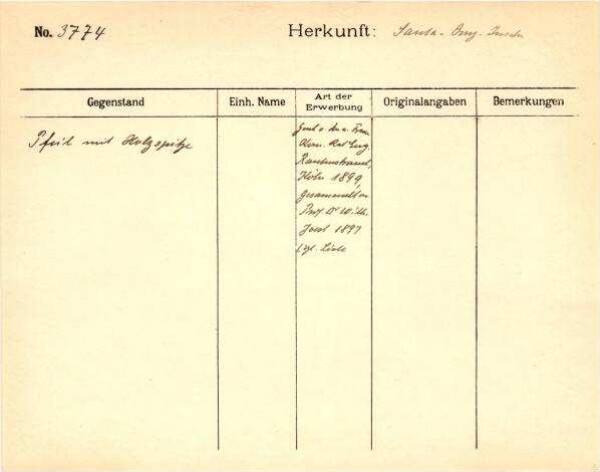 No. 3774 Herkunft: Santa-Cruz-Inseln
Gegenstand Einh. Name Art der Erwerbung Originalangaben Bemerkungen
Pfeil mit Holzspitze
Gesch. v. Frau
Kom. Rat Eug.
Rautenstrauch,
Köln 1899,
gesammelt von
Prof. Dr. Wilh.
Joest 1897
s. Liste